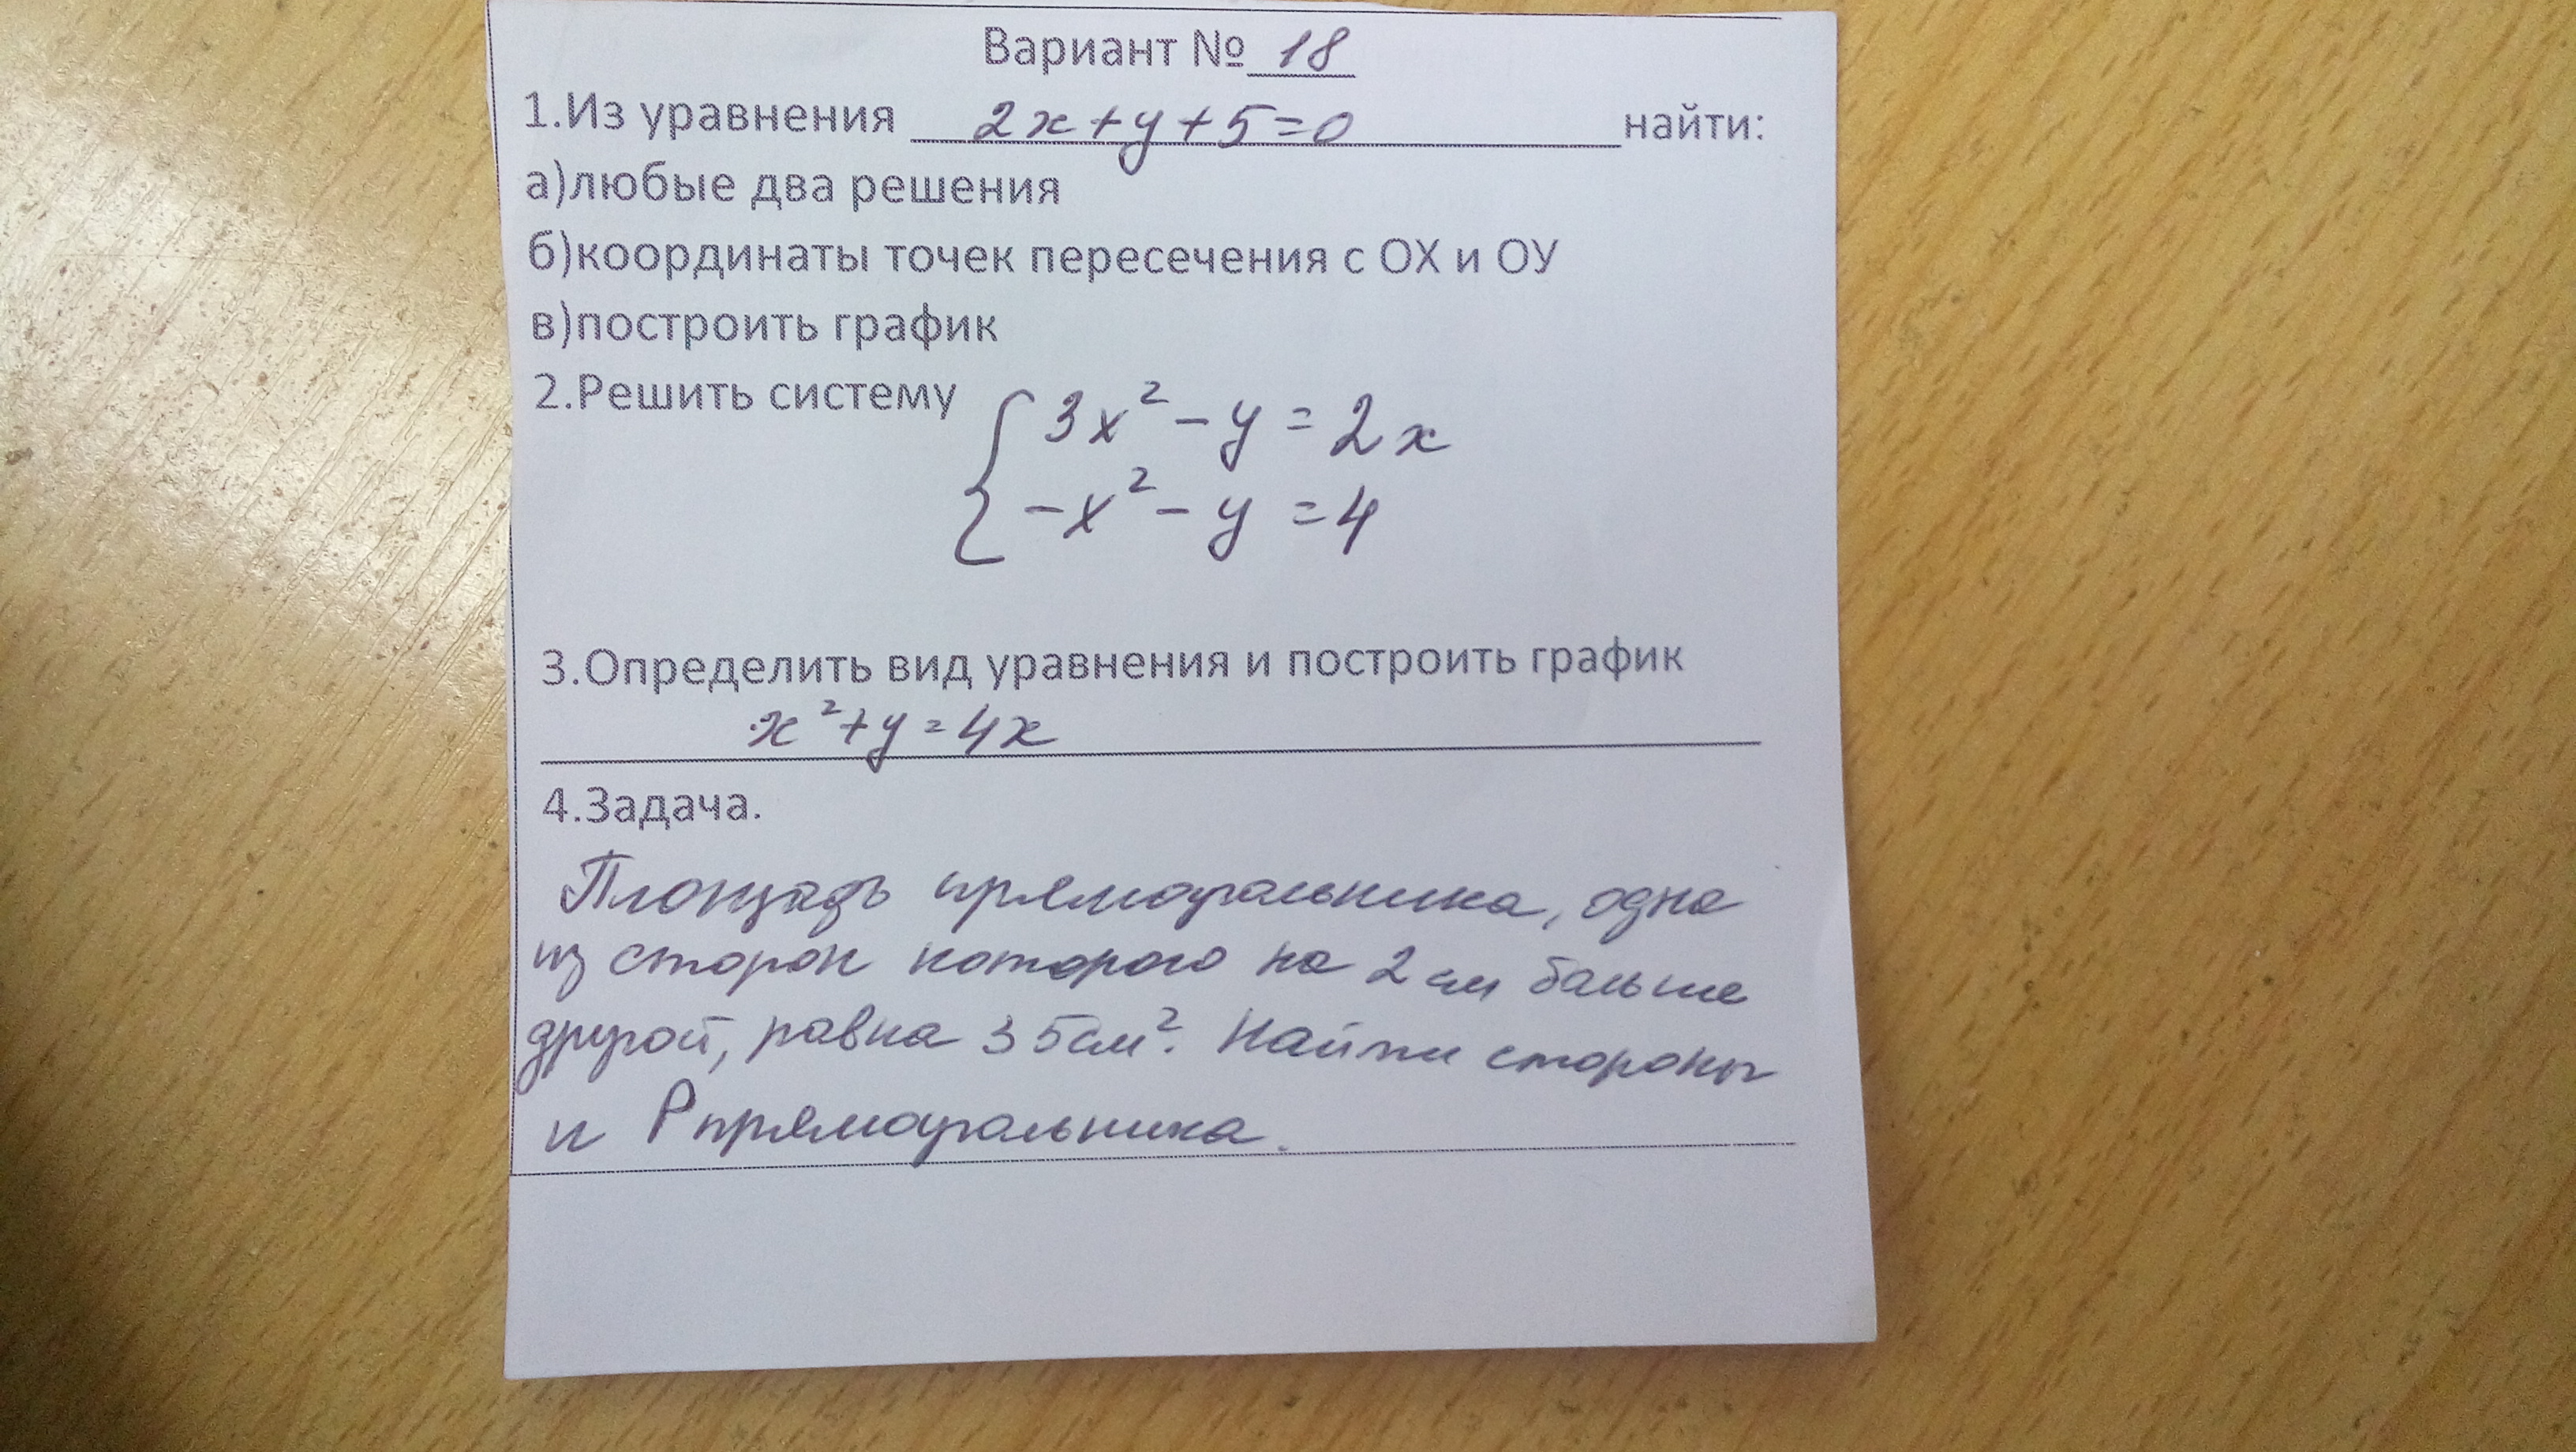 Вариант № 18
1.Из уравнения 2x+y+5=0 найти:
а)любые два решения
б)координаты точек пересечения с ОХ и ОУ
в)построить график
2.Решить систему { 3x²-y=2x
-x²-y=4
3.Определить вид уравнения и построить график
x²+y=4x
4.Задача.
Площадь прямоугольника, одна
из сторон которого на 2 см больше
другой, равна 35см². Найти стороны
и Р прямоугольника.